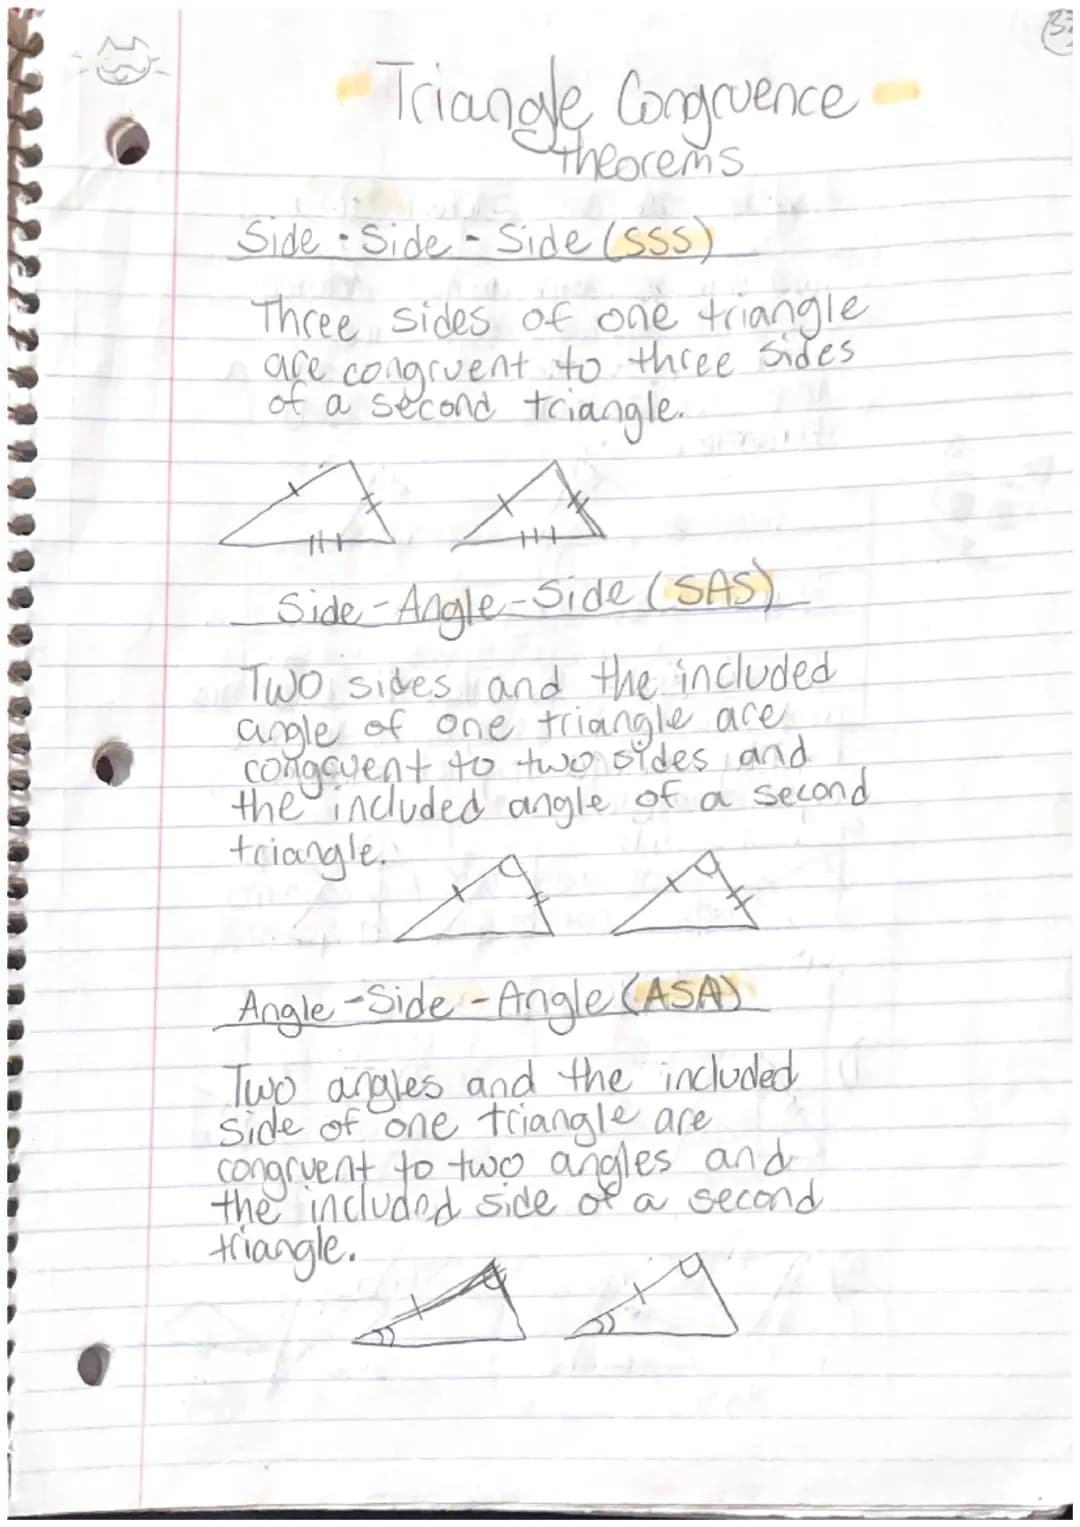 Triangle Congruence
theorems
Side - Side - Side (SSS)
Three sides of one triangle
are congruent to three sides
of a second triangle.
Side - Angle - Side (SAS)
Two sides and the included
angle of one triangle are
congruent to two sides and
the included angle of a second
triangle.
Angle - Side - Angle (ASA)
Two angles and the included
side of one triangle are
congruent to two angles and
the included side of a second
triangle.